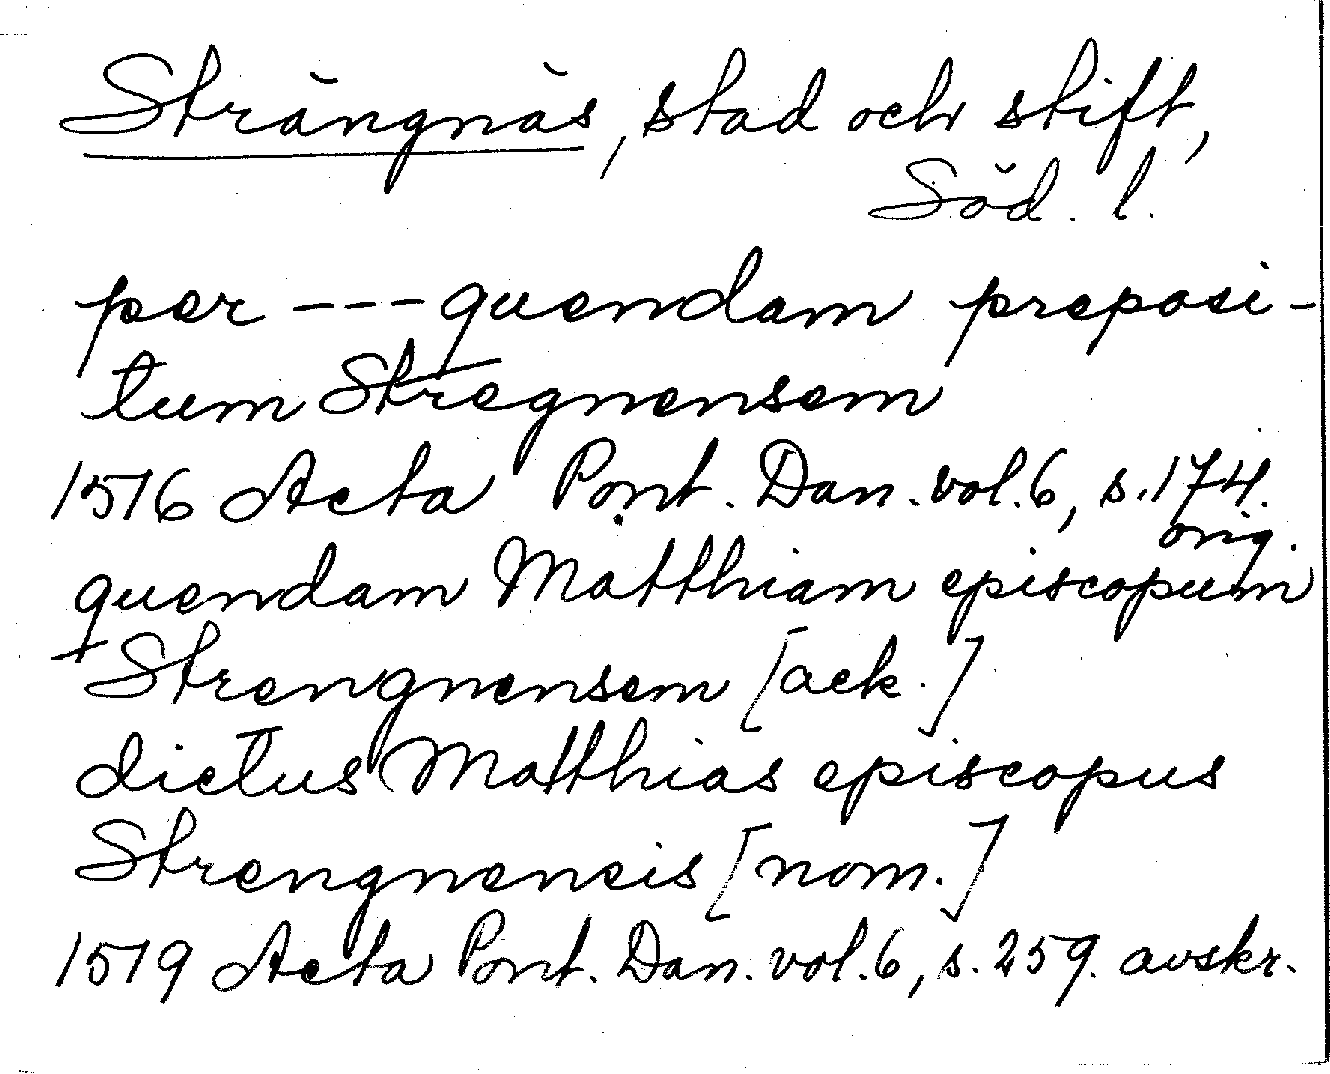 Strängnäs, stad och stift,
Söd. l.
per --- quendam preposi-
tum Stregnensem
1516 Acta Pont. Dan. vol. 6, s. 174.
orig.
quendam Matthiam episcopum
Strengnensem [ack.]
dictus Matthias episcopus
Strengnensis [nom.]
1519 Acta Pont. Dan. vol. 6, s. 259. avskr.